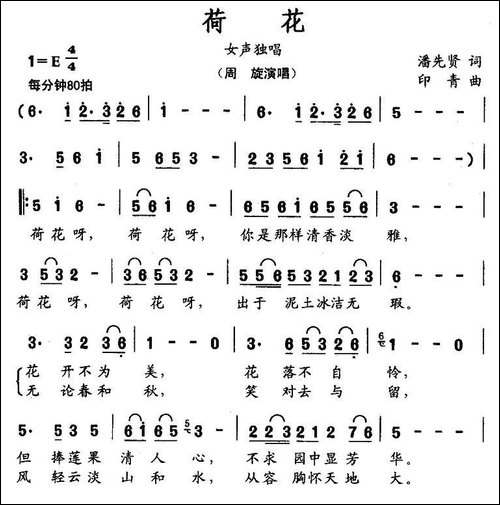 荷 花
女声独唱
1=E 4/4
(周 旋演唱)
潘先贤 词
每分钟80拍
印 青 曲
(6· 1 2·3 2 6 | 1 - - - | 6· 1 2·3 2 6 | 5 - - - |
3· 5 6 1 | 5 6 5 3 - | 2 3 5 6 1 2 1 | 6 - - -)
‖: 5 1 6 - | 5 6 1 6 - | 6 5 6 1 6 5 5 6 | 3 - - - |
荷 花 呀, 荷 花 呀, 你是那样清香淡 雅,
3 5 3 2 - | 3 6 5 3 2 - | 5 5 6 5 3 2 1 2 3 | 6 - - - |
荷 花 呀, 荷 花 呀, 出于 泥土冰洁无 瑕。
3· 3 2 3 6 | 1 - - 0 | 3· 6 5 3 2 6 | 6 1 - - 0 |
花 开 不 为 美, 花 落 不 自 怜,
无 论 春 和 秋, 笑 对 去 与 留,
5· 5 3 5 | 6 1 6 5 5 3 - | 2 2 3 2 1 2 7 6 | 5 - - - |
但 捧莲果 清 人 心, 不求 园中显芳 华。
风 轻云淡 山 和 水, 从容 胸怀天地 大。